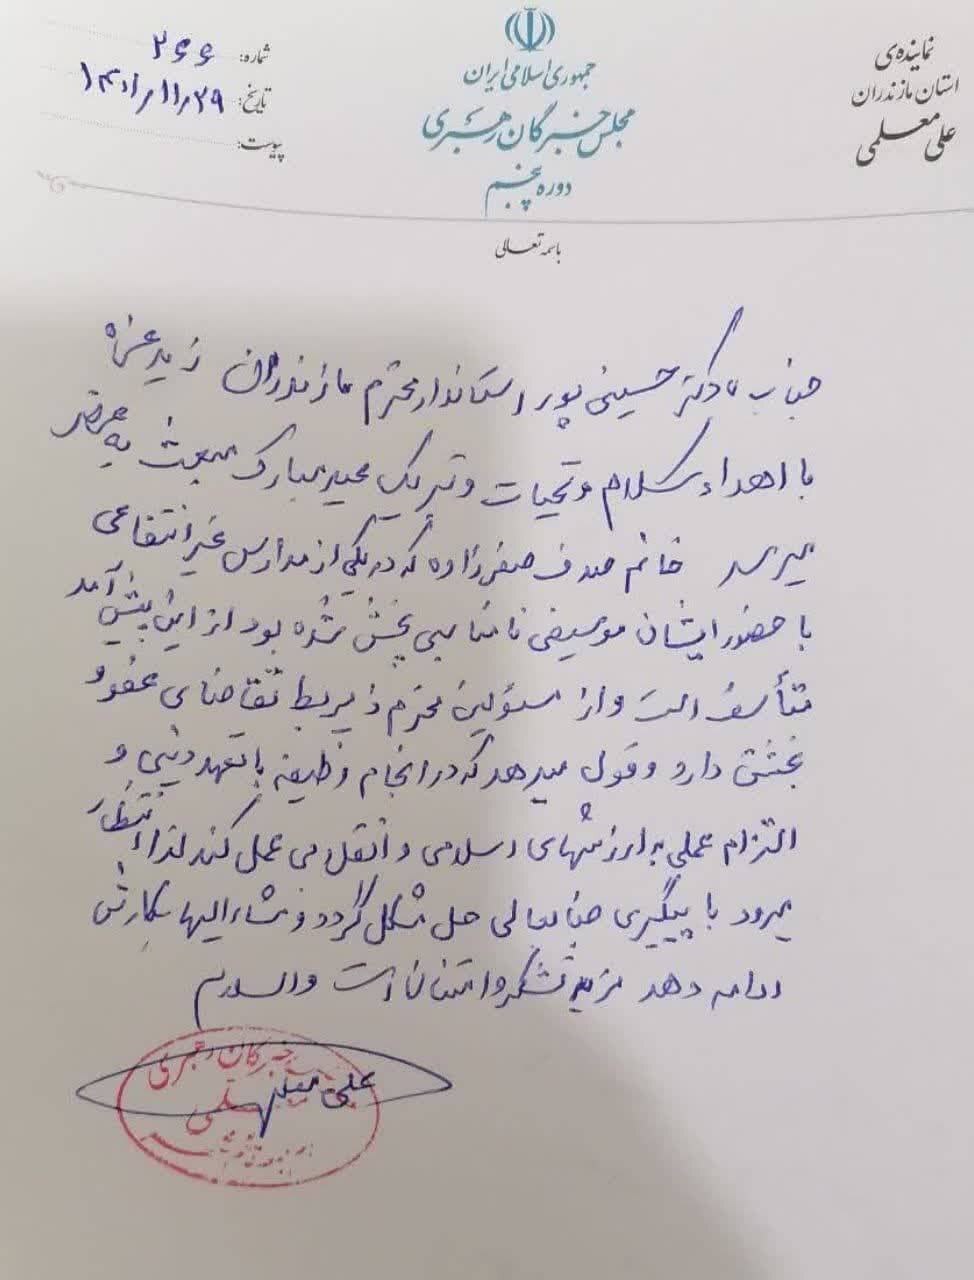 نماینده‌ی
استان مازندران
علی معلمی
جمهوری اسلامی ایران
مجلس خبرگان رهبری
دوره پنجم
شماره: ۲۶۶
تاریخ: ۱۴۰۱/۱۱/۲۹
پیوست:
باسمه تعالی
جناب دکتر حسینی پور استاندار محترم مازندران زید عزه
با اهداء سلام و تحیات و تبریک عید مبارک مبعث به عرض
میرسد خانم صدف صفرزاده که در یکی از مدارس غیر انتفاعی
با حضور ایشان موسیقی نامناسبی پخش شده بود از این پیش آمد
متأسف است و از مسئولین محترم ذیربط تقاضای عفو و
بخشش دارد و قول میدهد که در انجام وظیفه با تعهد دینی و
التزام عملی به ارزشهای اسلامی و انقلامی عمل کند لذا انتظار
میرود با پیگیری جنابعالی حل مشکل گردد و مشارالیها بکارش
ادامه دهد مزید تشکر و امتنان است والسلام
علی معلمی
خبرگان رهبری